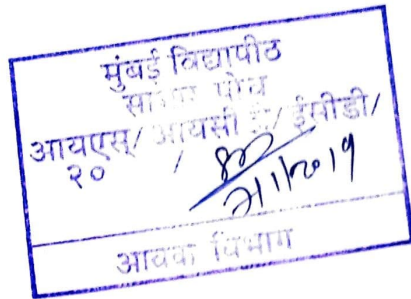 मुंबई विद्यापीठ
पोच
आयएस/ आयसी डी/ ईसीडी/
२०      /
2/1/2019
आवक विभाग